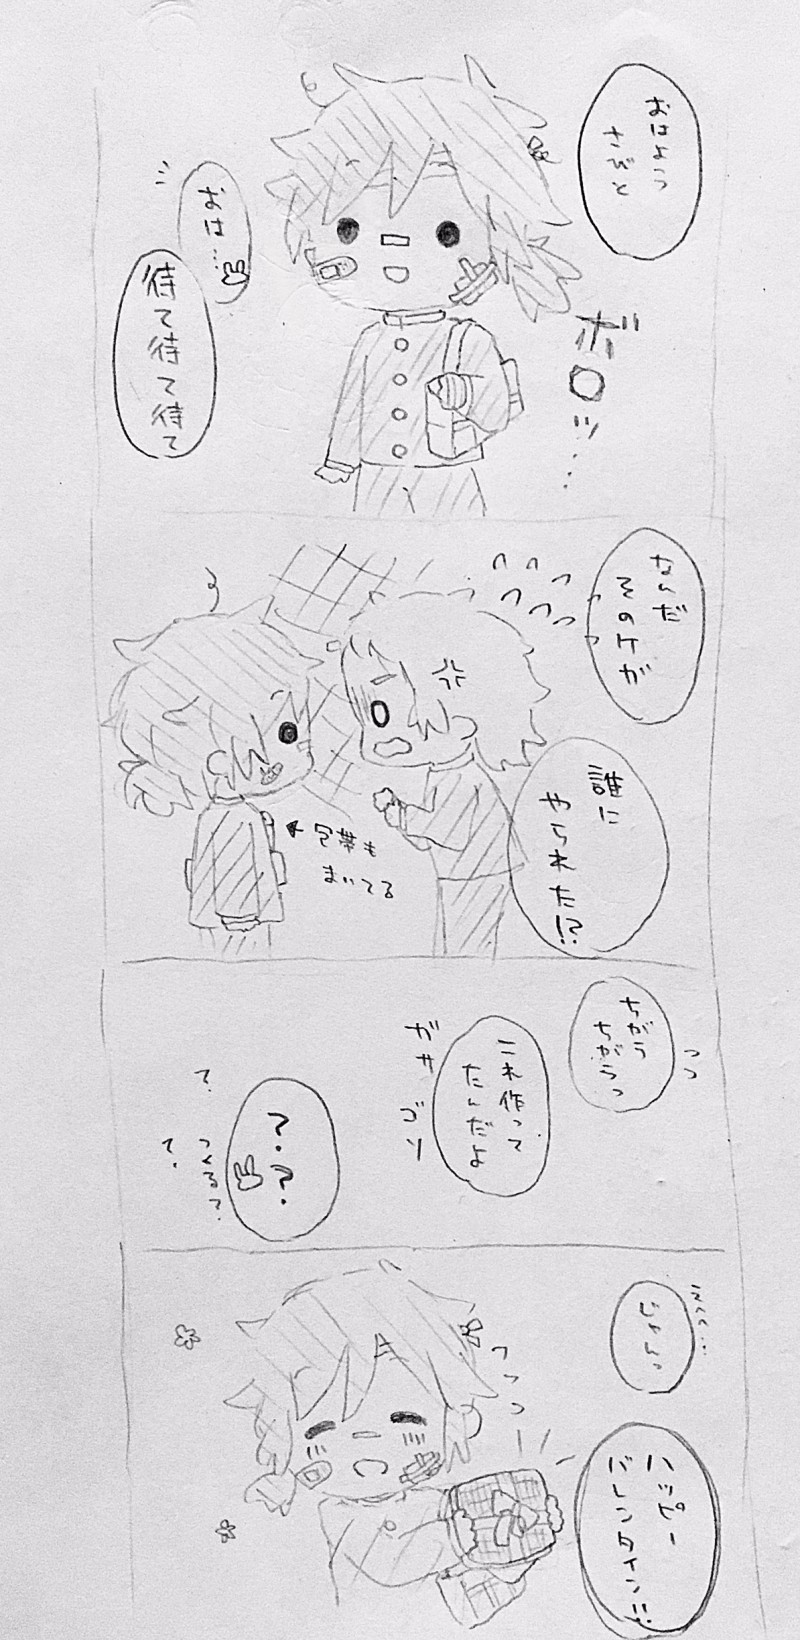 おはよう
さびと
ボロッ…
おは…
待て待て待て
なんだ
そのケガ
誰に
やられた!?
包帯も
まいてる
ちがう
ちがうっ
これ作って
たんだよ
ガサ ゴソ
??
?
つくる?
?
じゃんっ
ハッピー
バレンタイン!!